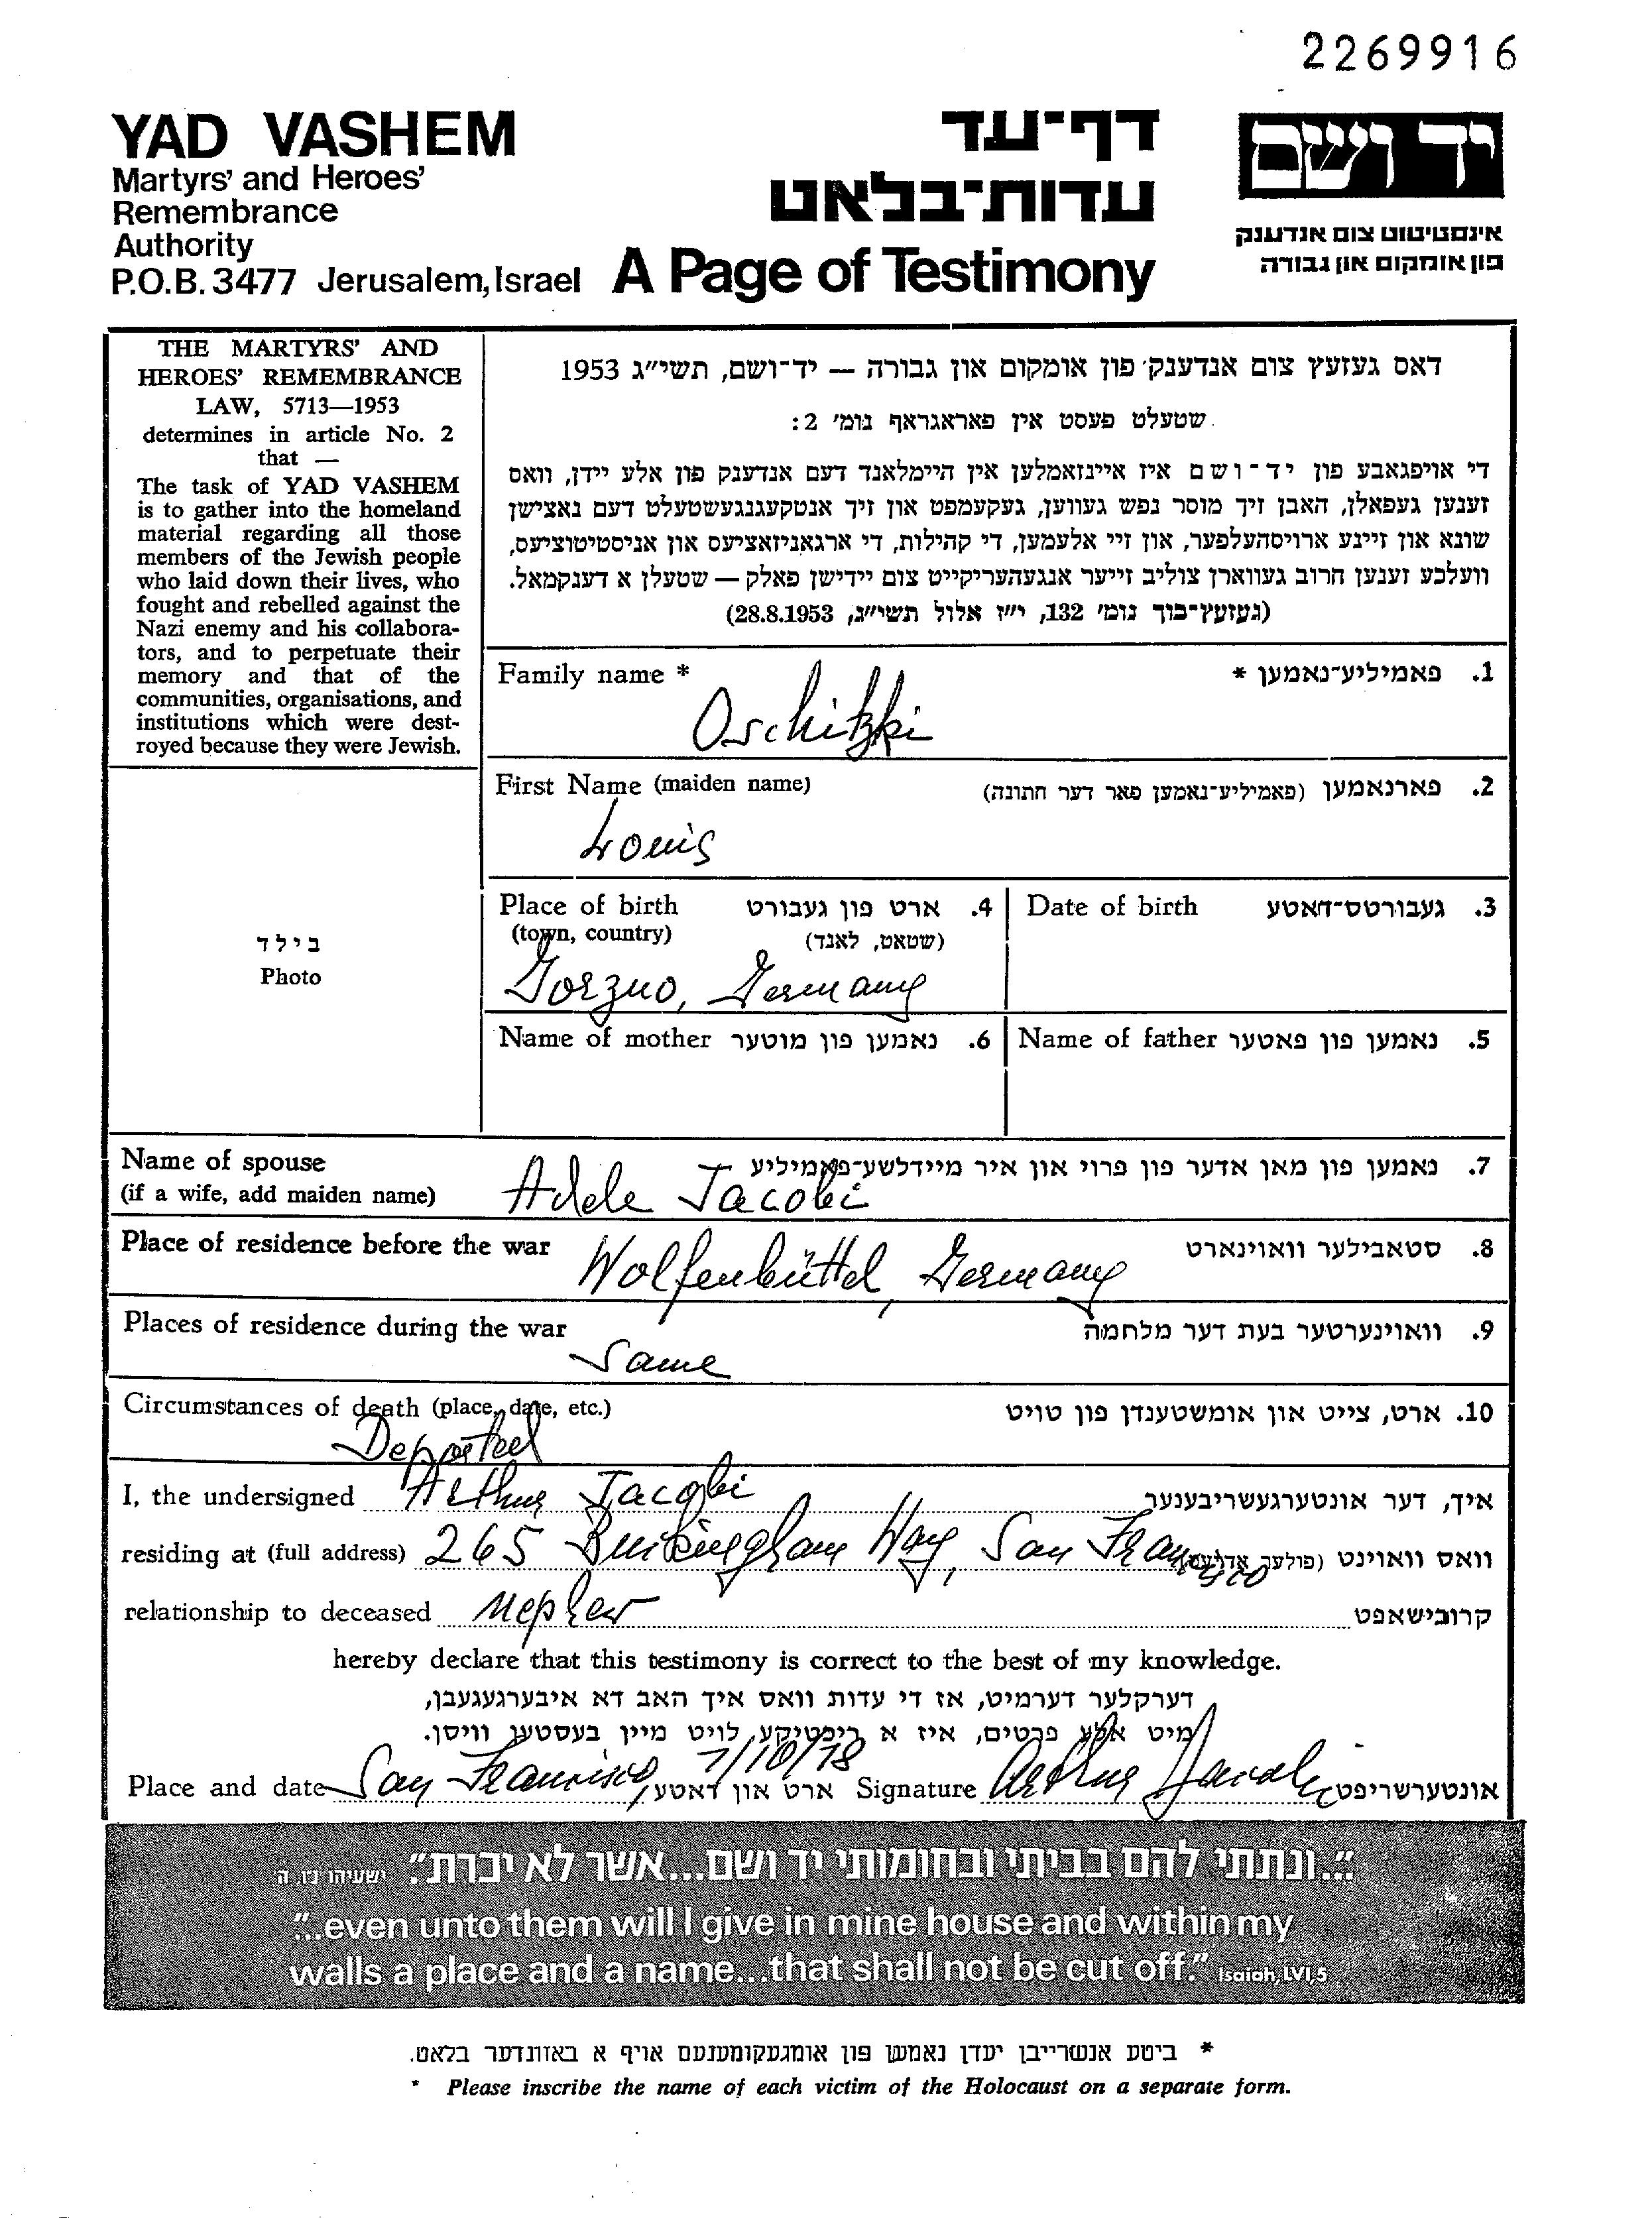 2269916
YAD VASHEM
Martyrs' and Heroes'
Remembrance
Authority
P.O.B. 3477 Jerusalem, Israel
דף־עד
עדות־בלאט
A Page of Testimony
יד ושם
אינסטיטוט צום אנדענק
פון אומקום און גבורה
THE MARTYRS' AND
HEROES' REMEMBRANCE
LAW, 5713—1953
determines in article No. 2
that —
The task of YAD VASHEM
is to gather into the homeland
material regarding all those
members of the Jewish people
who laid down their lives, who
fought and rebelled against the
Nazi enemy and his collabora-
tors, and to perpetuate their
memory and that of the
communities, organisations, and
institutions which were dest-
royed because they were Jewish.
דאס געזעץ צום אנדענק פון אומקום און גבורה — יד־ושם, תשי״ג 1953
שטעלט פעסט אין פאראגראף נומ׳ 2:
די אויפגאבע פון יד־ושם איז איינזאמלען אין היימלאנד דעם אנדענק פון אלע יידן, וואס
זענען געפאלן, האבן זיך מוסר נפש געווען, געקעמפט און זיך אנטקעגנגעשטעלט דעם נאצישן
שונא און זיינע ארויסהעלפער, און זיי אלעמען, די קהילות, די ארגאניזאציעס און אניסטיטוציעס,
וועלכע זענען חרוב געווארן צוליב זייער אנגעהעריקייט צום יידישן פאלק — שטעלן א דענקמאל.
(געזעץ־בוך נומ׳ 132, י״ז אלול תשי״ג, 28.8.1953)
Family name * פאמיליע־נאמען * .1
Oschitzki
First Name (maiden name) פארנאמען (פאמיליע־נאמען פאר דער חתונה) .2
Louis
Place of birth ארט פון געבורט .4 Date of birth געבורטס־דאטע .3
(town, country) (שטאט, לאנד)
Gorzno, Germany
בילד
Photo
Name of mother נאמען פון מוטער .6 Name of father נאמען פון פאטער .5
Name of spouse נאמען פון מאן אדער פון פרוי און איר מיידלשע־פאמיליע .7
(if a wife, add maiden name) Adele Jacobi
Place of residence before the war Wolfenbüttel, Germany סטאבילער וואוינארט .8
Places of residence during the war וואוינערטער בעת דער מלחמה .9
Same
Circumstances of death (place, date, etc.) ארט, צייט און אומשטענדן פון טויט .10
Deported
I, the undersigned Arthur Jacobi איך, דער אונטערגעשריבענער
residing at (full address) 265 Buckingham Way, San Francisco וואס וואוינט (פולער אדרעס)
relationship to deceased nephew קרובישאפט
hereby declare that this testimony is correct to the best of my knowledge.
דערקלער דערמיט, אז די עדות וואס איך האב דא איבערגעגעבן,
מיט אלע פרטים, איז א ריכטיקע לויט מיין בעסטען וויסן.
Place and date San Francisco, 7/10/78 ארט און דאטע Signature Arthur Jacobi אונטערשריפט
"...ונתתי להם בביתי ובחומותי יד ושם...אשר לא יכרת." ישעיהו נ״ו, ה
"...even unto them will I give in mine house and within my
walls a place and a name...that shall not be cut off." Isaiah, LVI,5
* ביטע אנשרייבן יעדן נאמען פון אומגעקומענעם אויף א באזונדער בלאט.
* Please inscribe the name of each victim of the Holocaust on a separate form.